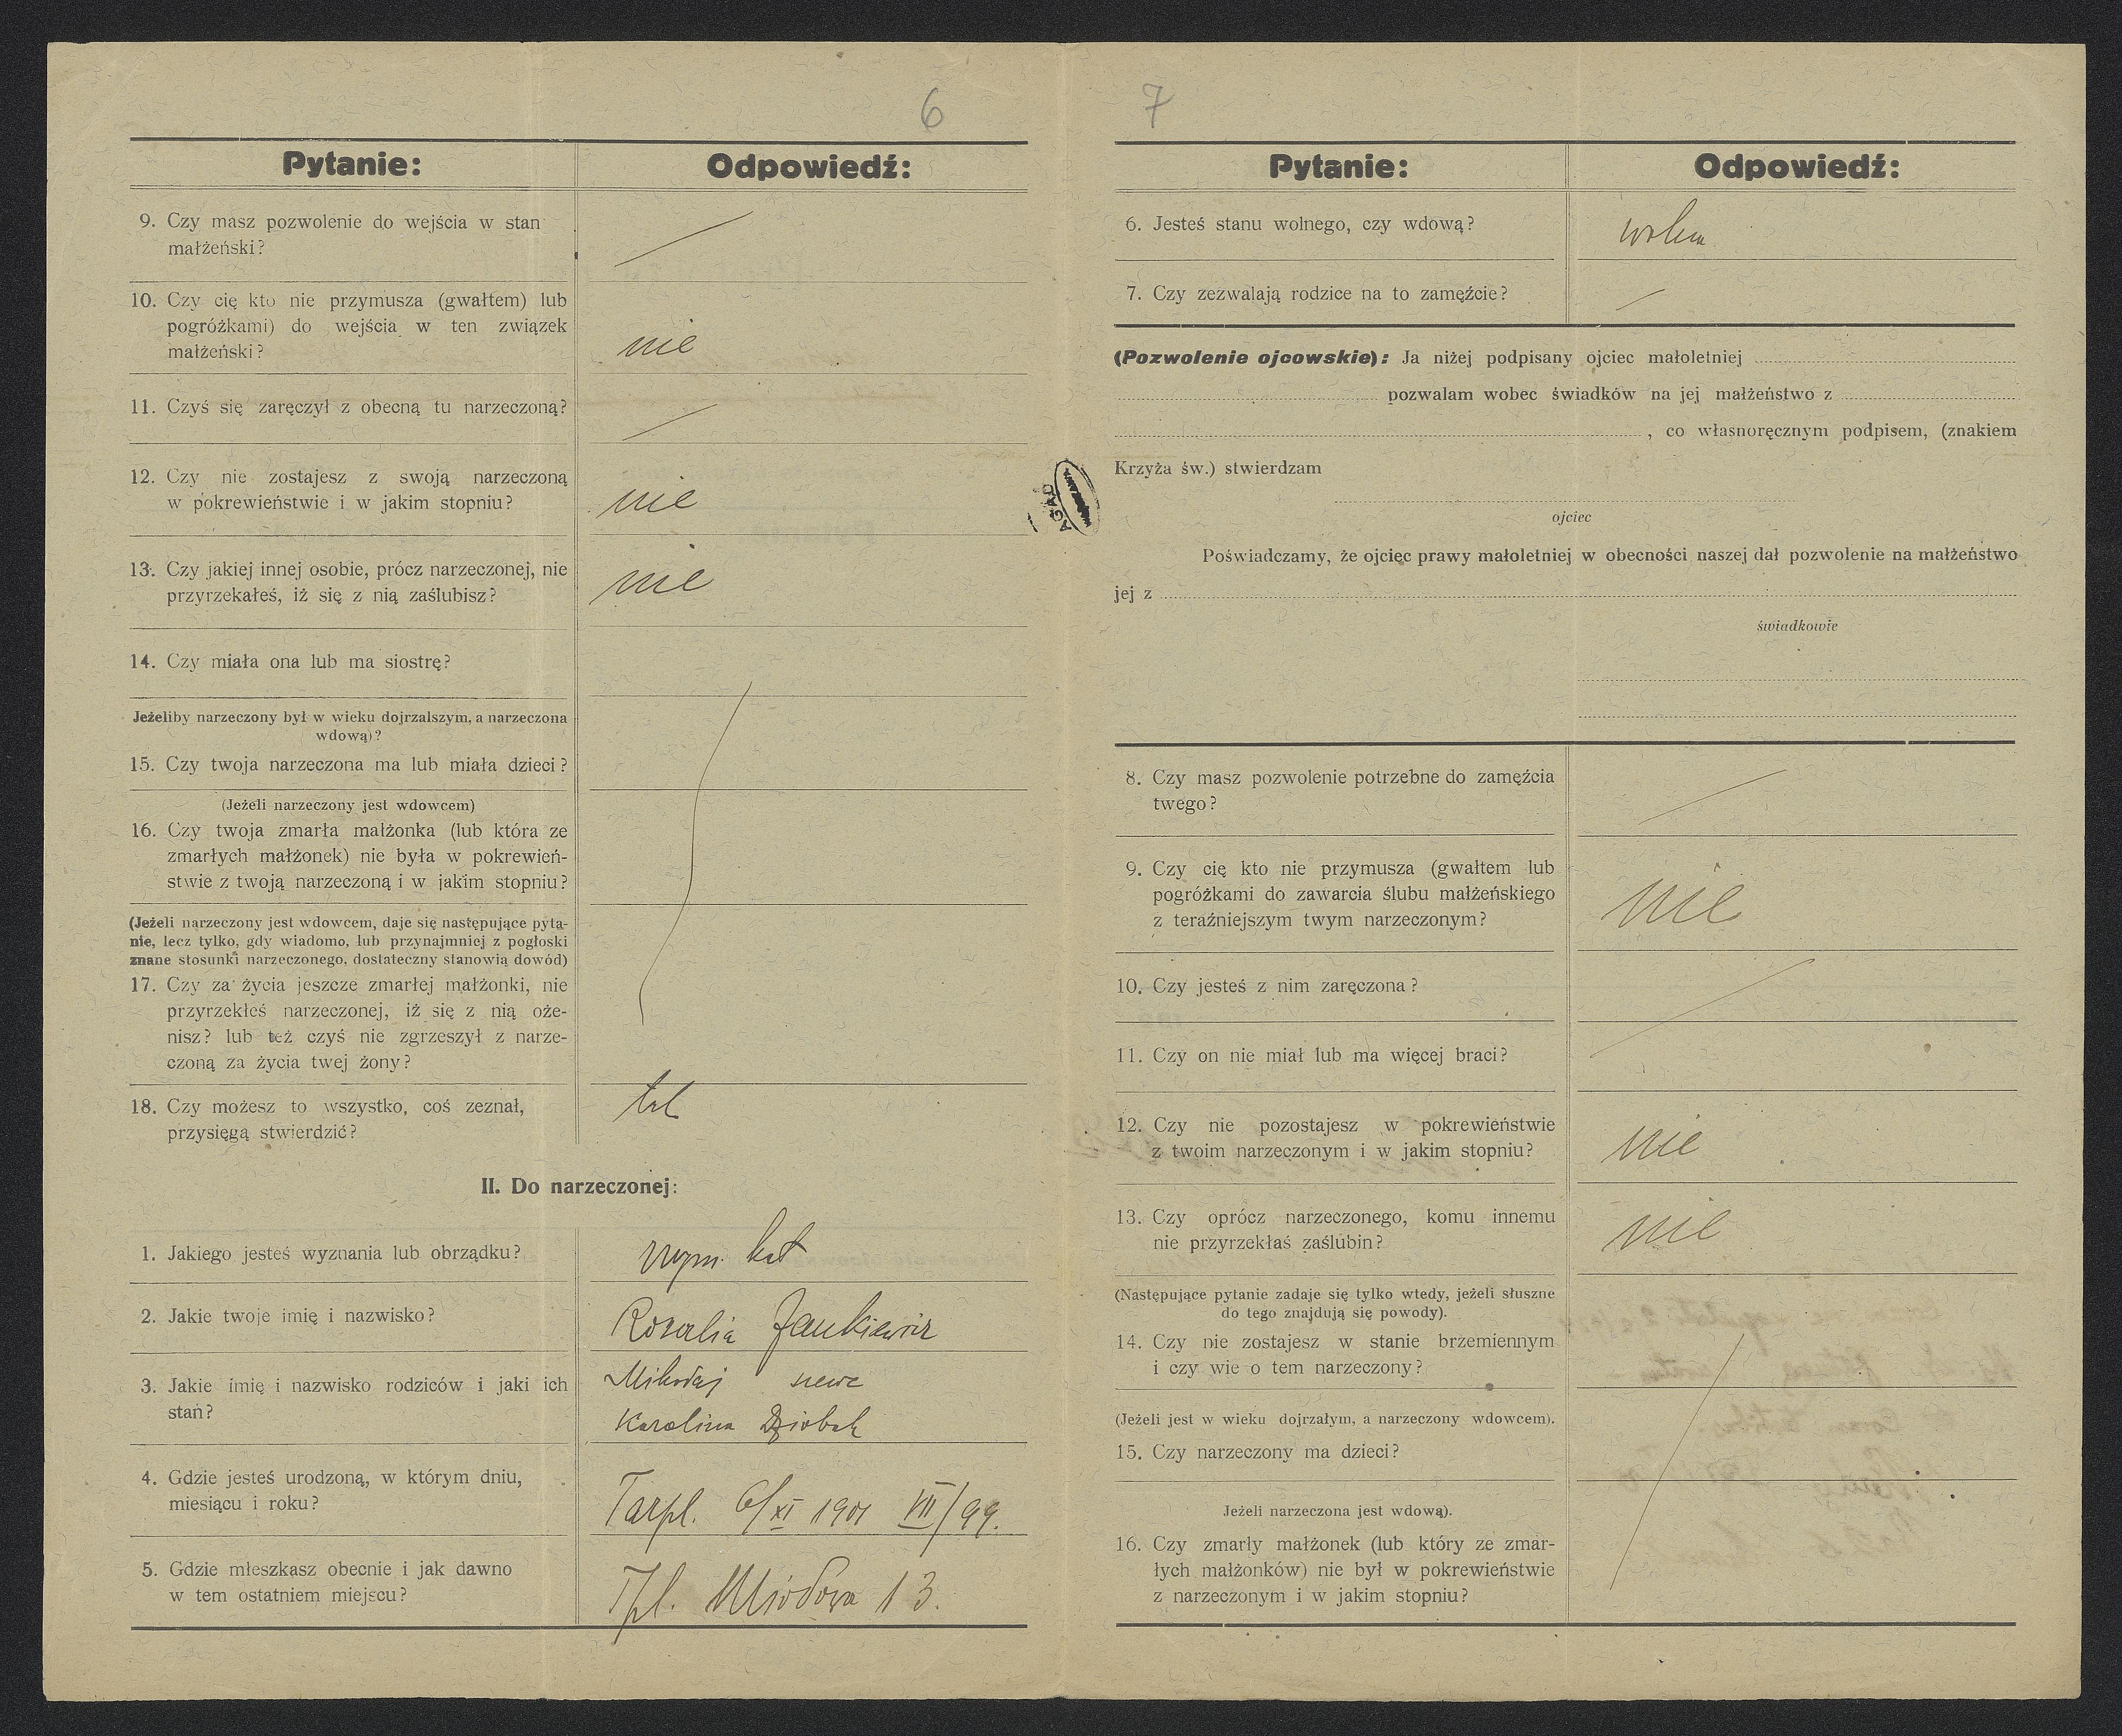 6
Pytanie: Odpowiedź:
9. Czy masz pozwolenie do wejścia w stan
małżeński?
10. Czy cię kto nie przymusza (gwałtem) lub
pogróżkami) do wejścia w ten związek
małżeński? nie
11. Czyś się zaręczył z obecną tu narzeczoną?
12. Czy nie zostajesz z swoją narzeczoną
w pokrewieństwie i w jakim stopniu? nie
13. Czy jakiej innej osobie, prócz narzeczonej, nie
przyrzekałeś, iż się z nią zaślubisz? nie
14. Czy miała ona lub ma siostrę?
Jeżeliby narzeczony był w wieku dojrzalszym, a narzeczona
wdową)?
15. Czy twoja narzeczona ma lub miała dzieci?
(Jeżeli narzeczony jest wdowcem)
16. Czy twoja zmarła małżonka (lub która ze
zmarłych małżonek) nie była w pokrewień-
stwie z twoją narzeczoną i w jakim stopniu?
(Jeżeli narzeczony jest wdowcem, daje się następujące pyta-
nie, lecz tylko, gdy wiadomo, lub przynajmniej z pogłoski
znane stosunki narzeczonego, dostateczny stanowią dowód)
17. Czy za życia jeszcze zmarłej małżonki, nie
przyrzekłeś narzeczonej, iż się z nią oże-
nisz? lub też czyś nie zgrzeszył z narze-
czoną za życia twej żony?
18. Czy możesz to wszystko, coś zeznał, tak
przysięgą stwierdzić?
II. Do narzeczonej:
1. Jakiego jesteś wyznania lub obrządku? rzym. kat
2. Jakie twoje imię i nazwisko? Rozalia Jankiewicz
3. Jakie imię i nazwisko rodziców i jaki ich Mikołaj szewc
stan? Karolina Dziobak
4. Gdzie jesteś urodzoną, w którym dniu,
miesiącu i roku? Tarpl. 6/XI 1901 VII/99.
5. Gdzie mieszkasz obecnie i jak dawno
w tem ostatniem miejscu? Tpl. Miodowa 13.
7
Pytanie: Odpowiedź:
6. Jesteś stanu wolnego, czy wdową? wolna
7. Czy zezwalają rodzice na to zamęźcie?
(Pozwolenie ojcowskie): Ja niżej podpisany ojciec małoletniej
pozwalam wobec świadków na jej małżeństwo z
, co własnoręcznym podpisem, (znakiem
Krzyża św.) stwierdzam
AGAD
WARSZAWA
ojciec
Poświadczamy, że ojcięc prawy małoletniej w obecności naszej dał pozwolenie na małżeństwo
jej z
świadkowie
8. Czy masz pozwolenie potrzebne do zamęźcia
twego?
9. Czy cię kto nie przymusza (gwałtem lub
pogróżkami do zawarcia ślubu małżeńskiego
z teraźniejszym twym narzeczonym? nie
10. Czy jesteś z nim zaręczona?
11. Czy on nie miał lub ma więcej braci?
12. Czy nie pozostajesz w pokrewieństwie
z twoim narzeczonym i w jakim stopniu? nie
13. Czy oprócz narzeczonego, komu innemu
nie przyrzekłaś zaślubin? nie
(Następujące pytanie zadaje się tylko wtedy, jeżeli słuszne
do tego znajdują się powody).
14. Czy nie zostajesz w stanie brzemiennym
i czy wie o tem narzeczony?
(Jeżeli jest w wieku dojrzałym, a narzeczony wdowcem).
15. Czy narzeczony ma dzieci?
Jeżeli narzeczona jest wdową).
16. Czy zmarły małżonek (lub który ze zmar-
łych małżonków) nie był w pokrewieństwie
z narzeczonym i w jakim stopniu?